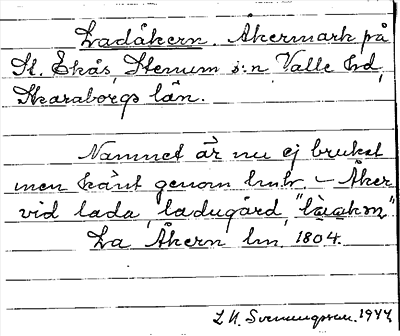 Ladåkern. Åkermark på
St. Ekås, Stenum s:n Valle hd,
Skaraborgs län.
Namnet är nu ej brukat
men känt genom hmbr. – Åker
vid lada, ladugård,
La Åkern lm. 1804.
Svenungsson. 1944